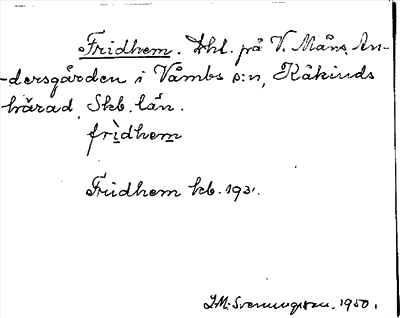 Fridhem. Lht. på V. Måns An-
-dersgården i Våmbs s:n, Kåkinds
härad, Skb. län.
frìdhem
Fridhem kb. 1931.
1950.